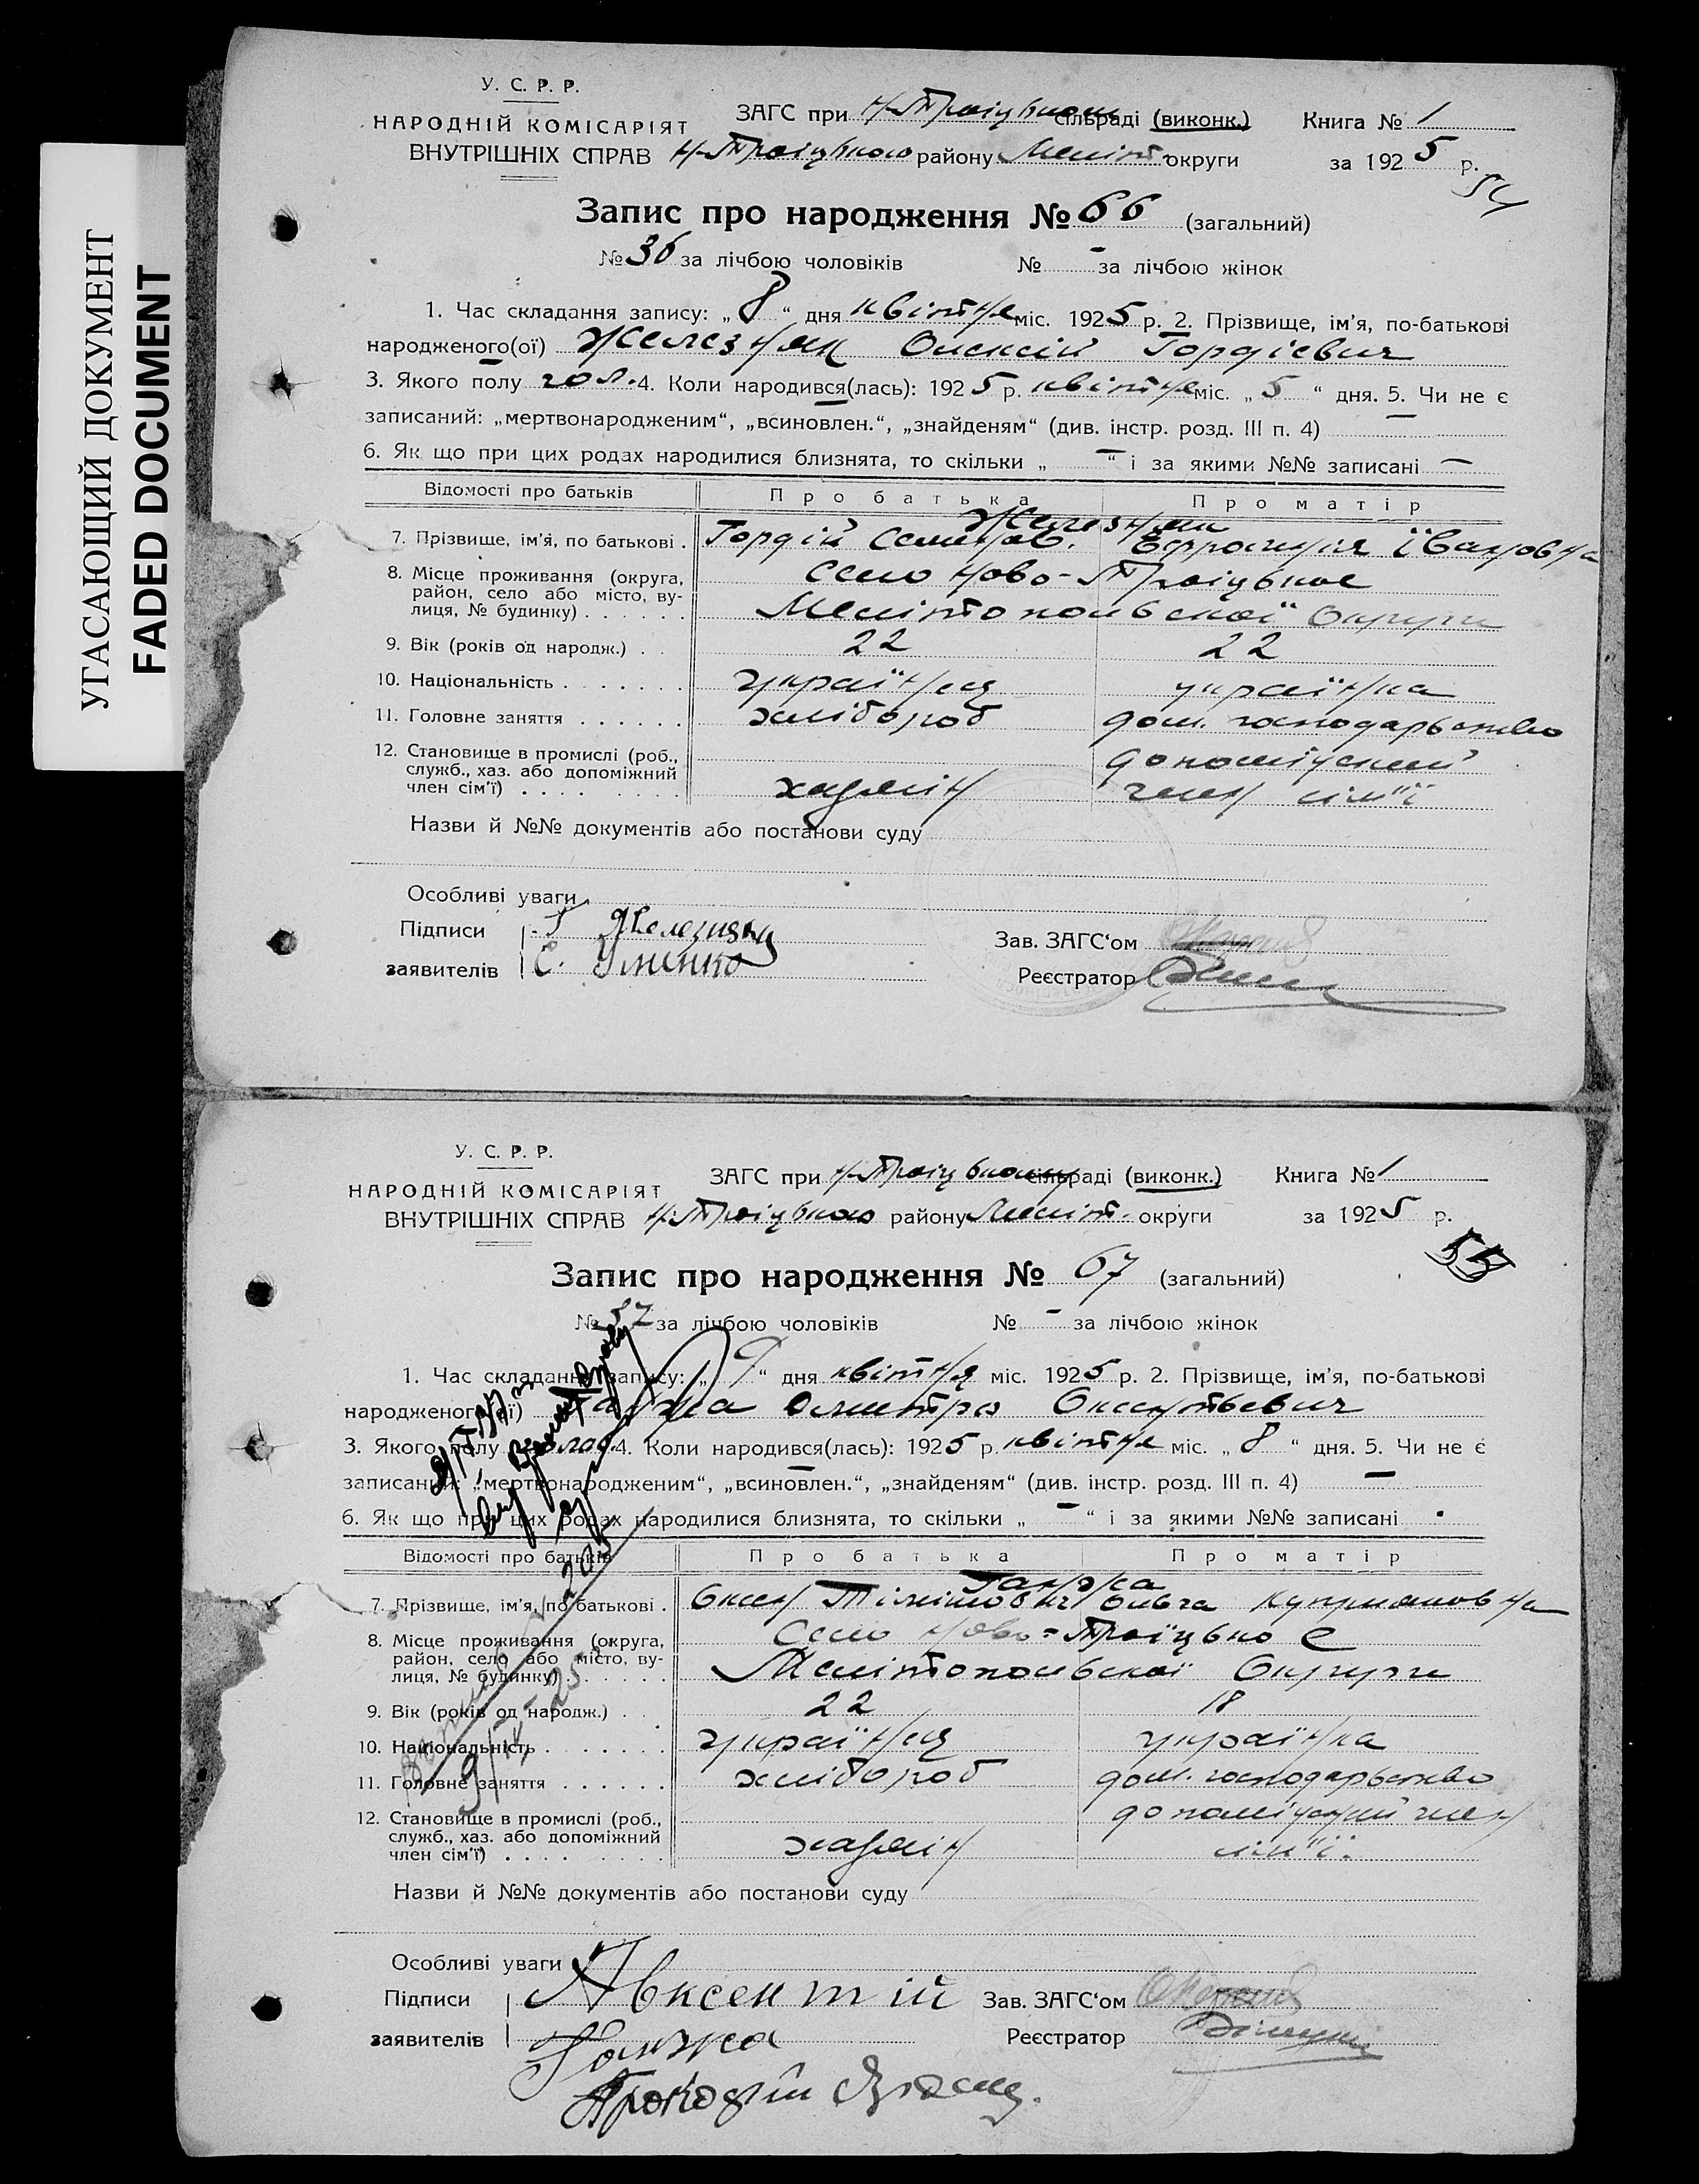 УГАСАЮЩИЙ ДОКУМЕНТ
FADED DOCUMENT
У. С. Р. Р.
НАРОДНІЙ КОМІСАРІЯТ
ВНУТРІШНІХ СПРАВ
ЗАГС при Н-Троіцьком сільраді (виконк.)
Н-Троіцького району Меліт. округи
Книга № 1
за 1925 р.
54
Запис про народження № 66 (загальний)
№ 36 за лічбою чоловіків № - за лічбою жінок
1. Час складання запису: „8“ дня квітня міс. 1925 р. 2. Прізвище, ім'я, по-батькові
народженого(ої) Железняк Олексій Гордієвич
3. Якого полу чол. 4. Коли народився(лась): 1925 р. квітня міс. „5“ дня. 5. Чи не є
записаний: „мертвонародженим“, „всиновлен.“, „знайденям“ (див. інстр. розд. III п. 4) —
6. Як що при цих родах народилися близнята, то скільки „—“ і за якими №№ записані —
Відомості про батьків Про батька Про матір
Железняк
7. Прізвище, ім'я, по батькові . Гордій Семенов. Єфросинія Івановна
8. Місце проживання (округа, район, село або місто, вулиця, № будинку) . . . . . . село Ново-Троіцькое
Мелітопольскоі Округи
9. Вік (років од народж.) . . 22 22
10. Національність . . . . . . . українець українка
11. Головне заняття . . . . . . хлібороб дом. господарьство
12. Становище в промислі (роб., служб., хаз. або допоміжний член сім'ї) . . . . хазяін допоміжний
член сім"ї
Назви й №№ документів або постанови суду
Особливі уваги
Підписи Г Железняк
заявителів Є.
Зав. ЗАГС'ом
Реєстратор
У. С. Р. Р.
НАРОДНІЙ КОМІСАРІЯТ
ВНУТРІШНІХ СПРАВ
ЗАГС при Н-Троіцькому сільраді (виконк.)
Н-Троіцького району Меліт. округи
Книга № 1
за 1925 р.
55
Запис про народження № 67 (загальний)
№ 37 за лічбою чоловіків № - за лічбою жінок
1. Час складання запису: „9“ дня квітня міс. 1925 р. 2. Прізвище, ім'я, по-батькові
народженого(ої) Ганжа Дмитро Оксентьевич
3. Якого полу чолов. 4. Коли народився(лась): 1925 р. квітня міс. „8“ дня. 5. Чи не є
записаний: „мертвонародженим“, „всиновлен.“, „знайденям“ (див. інстр. розд. III п. 4) —
6. Як що при цих родах народилися близнята, то скільки „—“ і за якими №№ записані
Відомості про батьків Про батька Про матір
Ганжа
7. Прізвище, ім'я, по батькові . Оксен Ольга
8. Місце проживання (округа, район, село або місто, вулиця, № будинку) . . . . . Село Ново-Троїцькоє
Мелітопольскоі Округи
9. Вік (років од народж.) . . 22 18
10. Національність . . . . . . . українець українка
11. Головне заняття . . . . . . хлібороб дом. господарьство
12. Становище в промислі (роб., служб., хаз. або допоміжний член сім'ї) . . . . хазяін допоміжний член
сім"ї.
Назви й №№ документів або постанови суду
Особливі уваги
Підписи Авксентій
заявителів Ганжа
Зав. ЗАГС'ом
Реєстратор